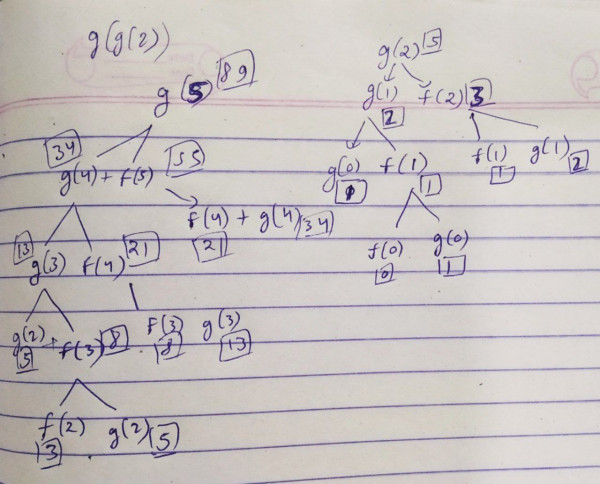 g(g(2))
g(5) 89
34 55
g(4) + f(5)
f(4) + g(4) 34
21
13 21
g(3) f(4)
g(2) + f(3) 8 f(3) g(3)
5 8 13
f(2) g(2) 5
3
g(2) 5
g(1) f(2) 3
2
g(0) f(1) f(1) g(1)
1 1 1 2
f(0) g(0)
0 1